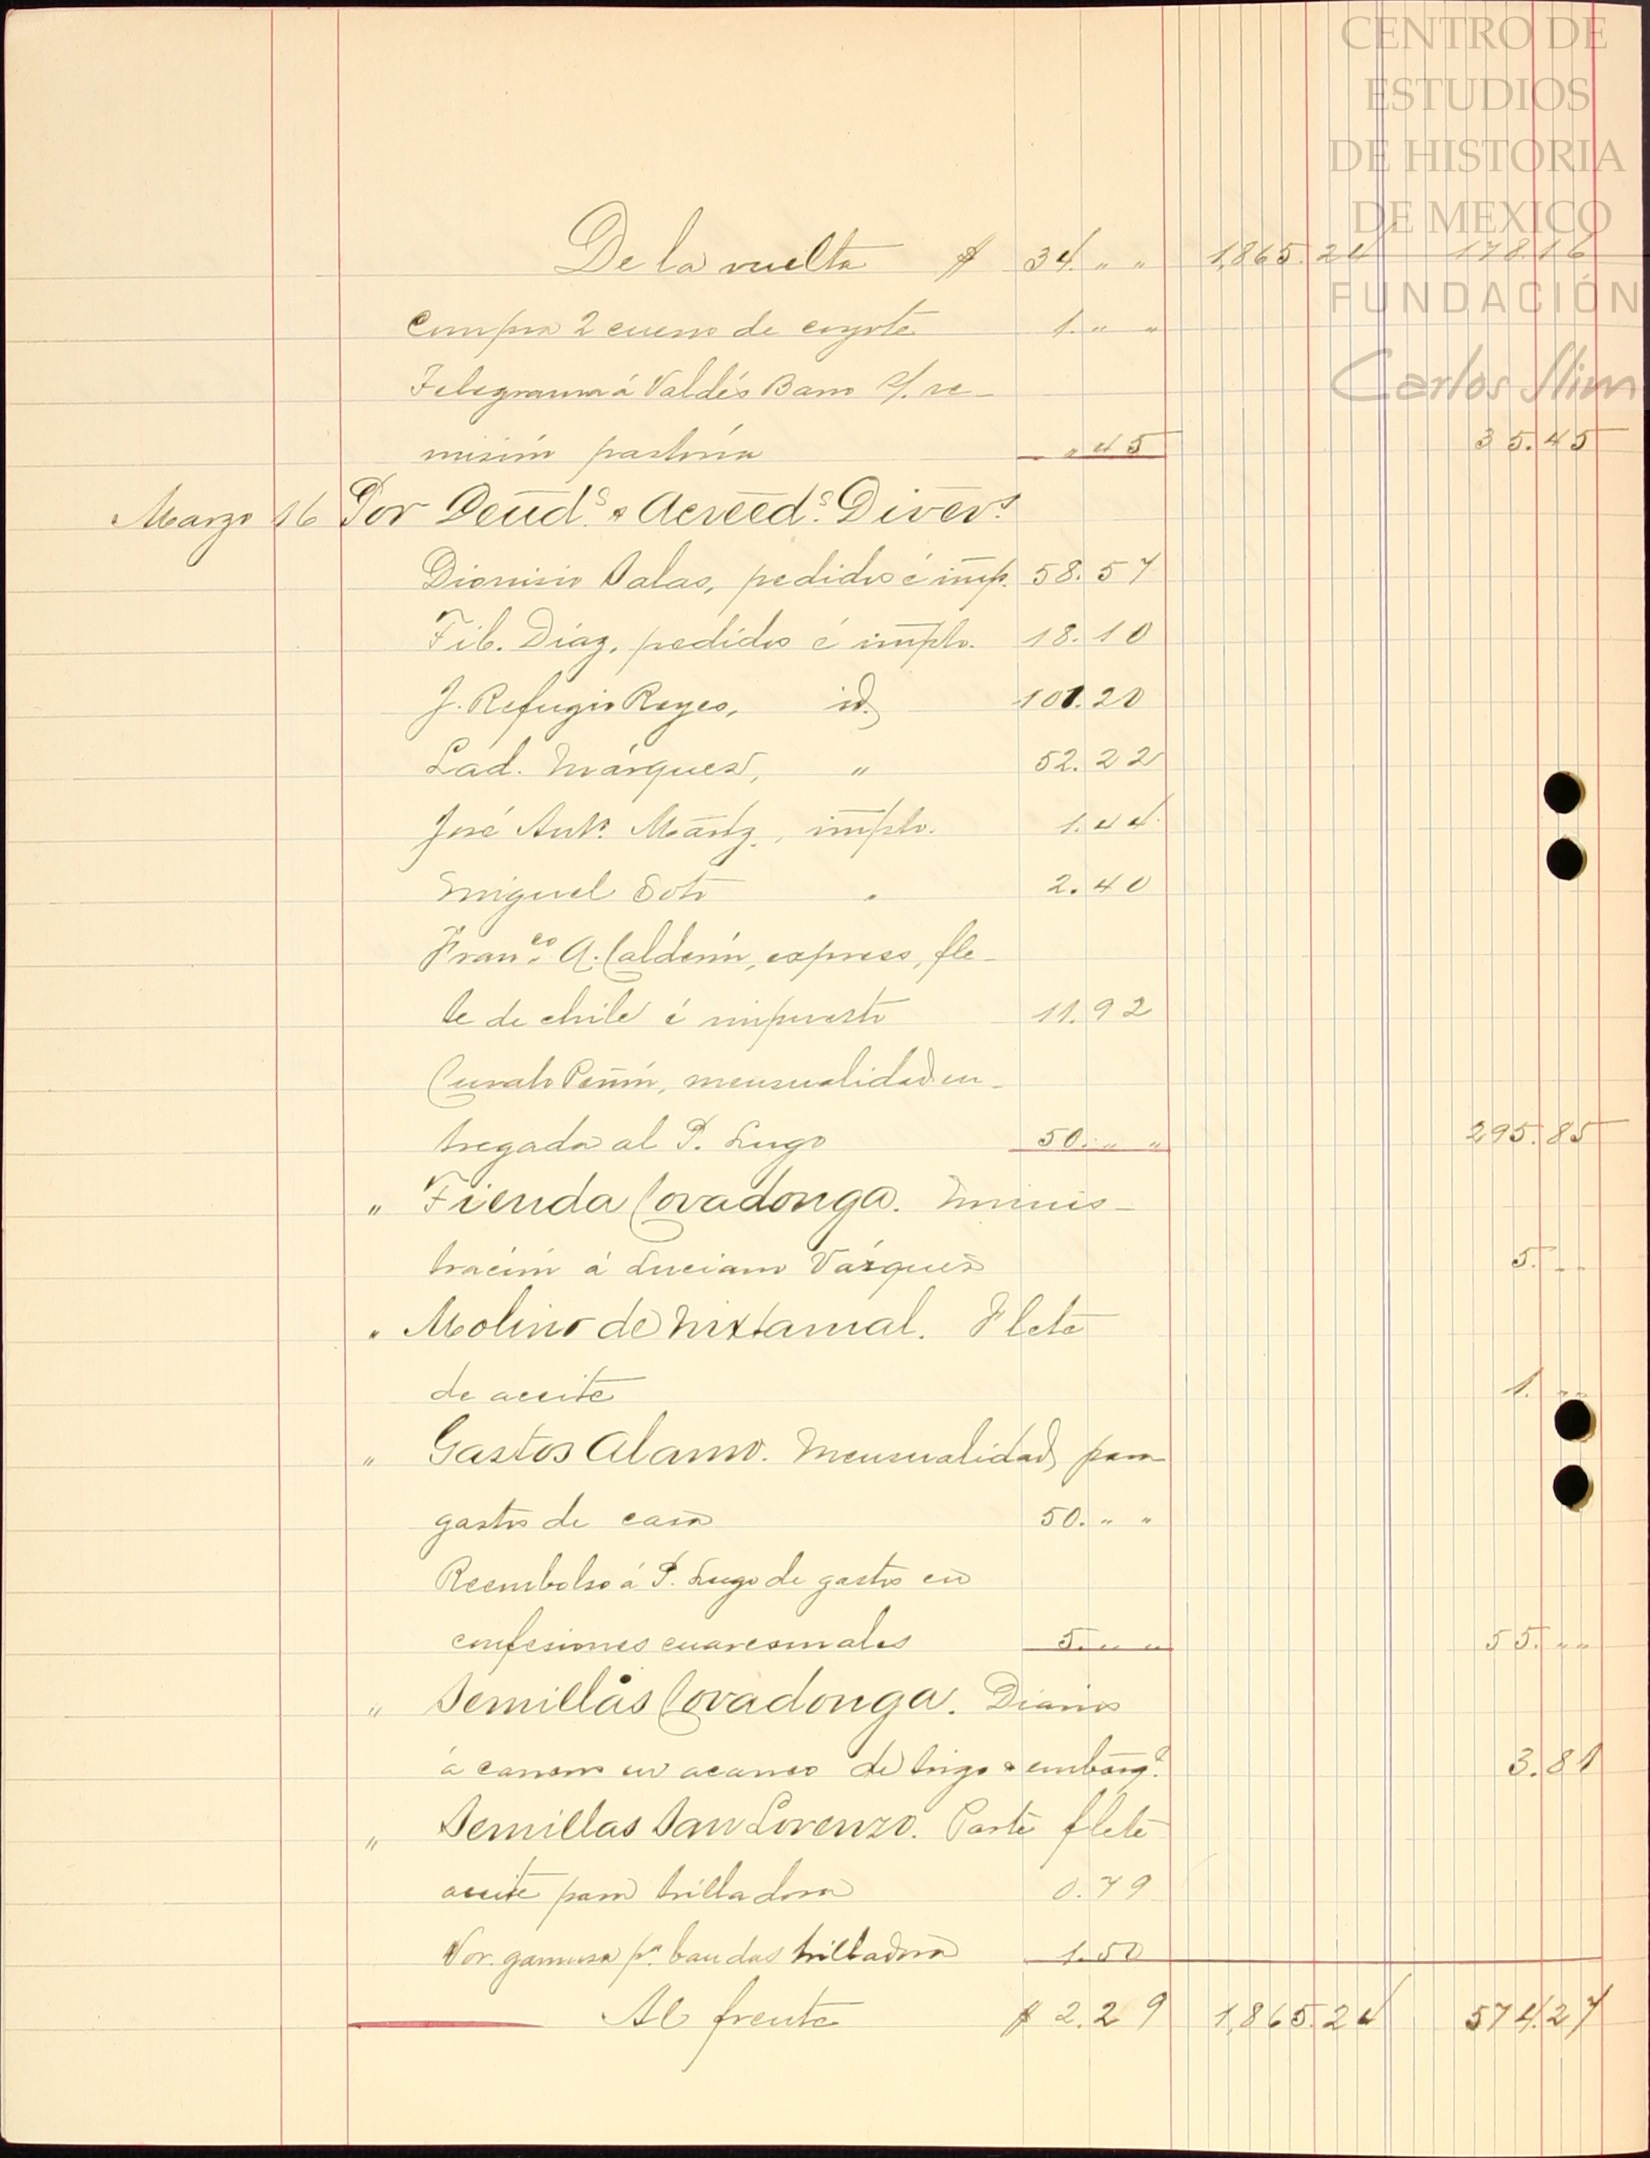 CENTRO DE
ESTUDIOS
DE HISTORIA
DE MEXICO
FUNDACIÓN
Carlos Slim
De la vuelta $ 34. " " 1,865.24 178.16
Compra 2 cueros de coyote 1. " "
Telegrama á Valdés Baro s/. re-
misión pastoría " 45 35.45
Marzo 16 Por Deud.s & Acreed.s Divers.
Dionisio Salas, pedidos é imp. 58.57
Tib. Díaz, pedidos é impto. 18.10
J. Refugio Reyes, id. 101.20
Lad. Márquez, " 52.22
José Ant.o Martz., impto. 1.44
Miguel Soto " 2.40
Fran.co A. Calderón, express, fle-
te de chile é impuesto 11.92
Curato Peñón, mensualidad en-
tregada al P. Lugo 50. " " 295.85
" Tienda Covadonga. Minis-
tración á Luciano Vázquez 5. " "
" Molino de Nixtamal. Flete
de aceite 1. " "
" Gastos Alamo. Mensualidad para
gastos de casa 50. " "
Reembolso á P. Lugo de gastos en
confesiones cuaresmales 5. " " 55. " "
" Semillas Covadonga. Diarios
á carreros en acarreo de trigo & embarq.e 3.81
" Semillas San Lorenzo. Parte flete
aceite para trilladora 0.79
Vor. gamuza p.a bandas trilladora 1.50
Al frente $ 2.29 1,865.24 574.27